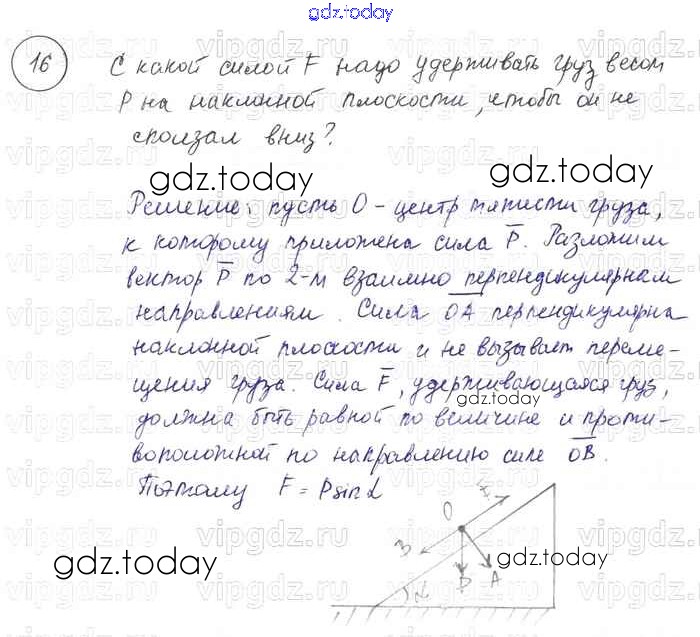 gdz.today
16
С какой силой F надо удерживать груз весом
P на наклонной плоскости, чтобы он не
сползал вниз?
gdz.today
gdz.today
Решение: пусть O - центр тяжести груза,
к которому приложена сила P̅. Разложим
вектор P̅ по 2-м взаимно перпендикулярным
направлениям. Сила O̅A̅ перпендикулярна
наклонной плоскости и не вызывает переме-
щения груза. Сила F̅, удерживающая груз,
gdz.today
должна быть равной по величине и проти-
воположной по направлению силе O̅B̅.
Поэтому F = P sin α
O
F
B
P
A
α
gdz.today
gdz.today
vipgdz.ru